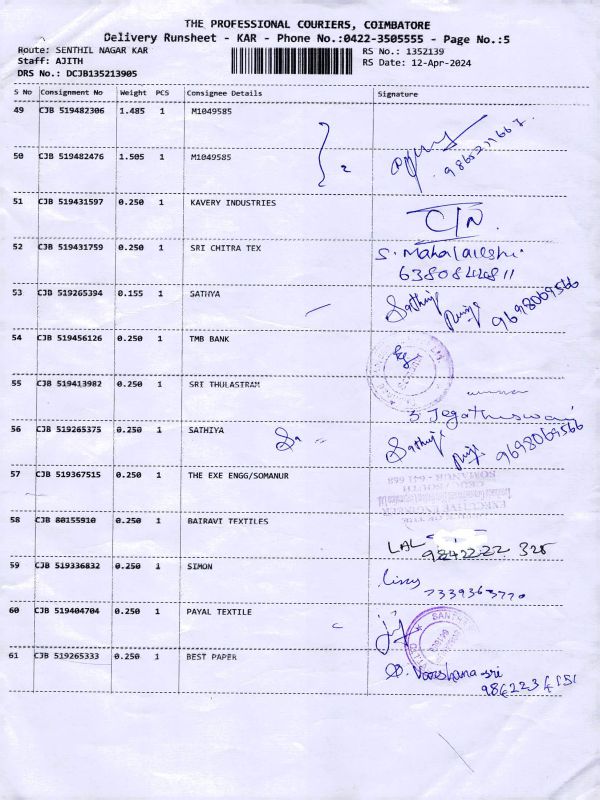 THE PROFESSIONAL COURIERS, COIMBATORE
Delivery Runsheet - KAR - Phone No.:0422-3505555 - Page No.:5
Route: SENTHIL NAGAR KAR
RS No.: 1352139
Staff: AJITH
RS Date: 12-Apr-2024
DRS No.: DCJB135213905
S No Consignment No Weight PCS Consignee Details Signature
49 CJB 519482306 1.485 1 M1049585
50 CJB 519482476 1.505 1 M1049585 2
51 CJB 519431597 0.250 1 KAVERY INDUSTRIES
52 CJB 519431759 0.250 1 SRI CHITRA TEX S. Mahalakshmi
6380844811
53 CJB 519265394 0.155 1 SATHYA 9698069566
54 CJB 519456126 0.250 1 TMB BANK
55 CJB 519413982 0.250 1 SRI THULASTRAM
S. Jegatheswari
56 CJB 519265375 0.250 1 SATHIYA 9698069566
57 CJB 519367515 0.250 1 THE EXE ENGG/SOMANUR
58 CJB 80155910 0.250 1 BAIRAVI TEXTILES
LAL 9842222 325
59 CJB 519336832 0.250 1 SIMON
7339363770
60 CJB 519404704 0.250 1 PAYAL TEXTILE
61 CJB 519265333 0.250 1 BEST PAPER
Varshana sri